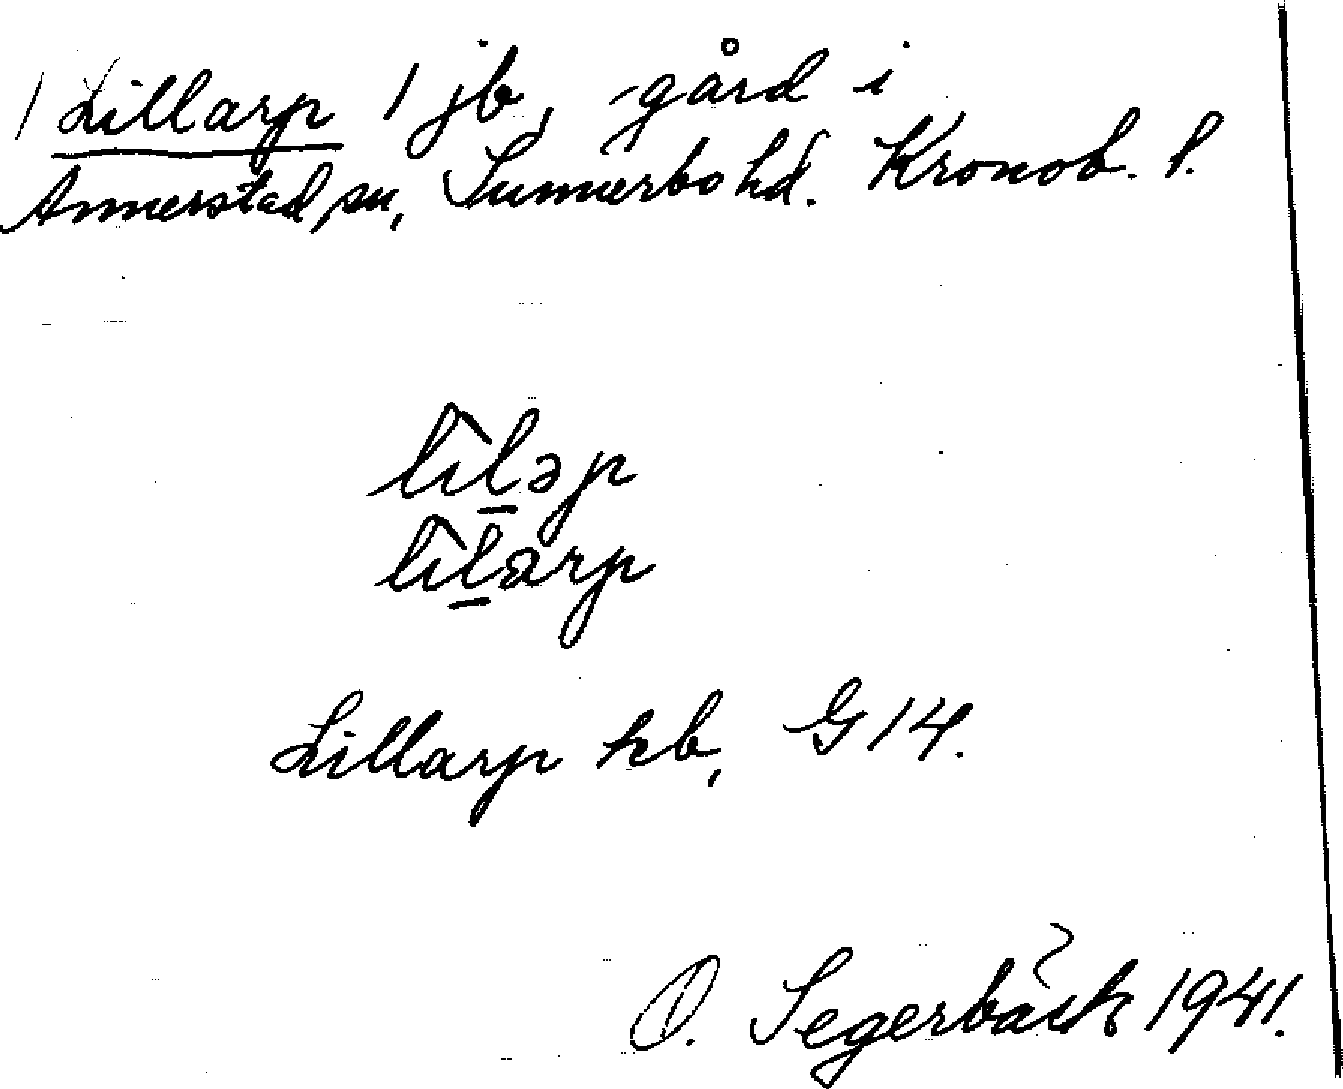 / Lillarp / jb, -gård i
Annerstad sn, Sunnerbo hd. Kronob. l.
lìl̠əp
lìl̠arp
Lillarp kb, G 14.
O. Segerbäck 1941.